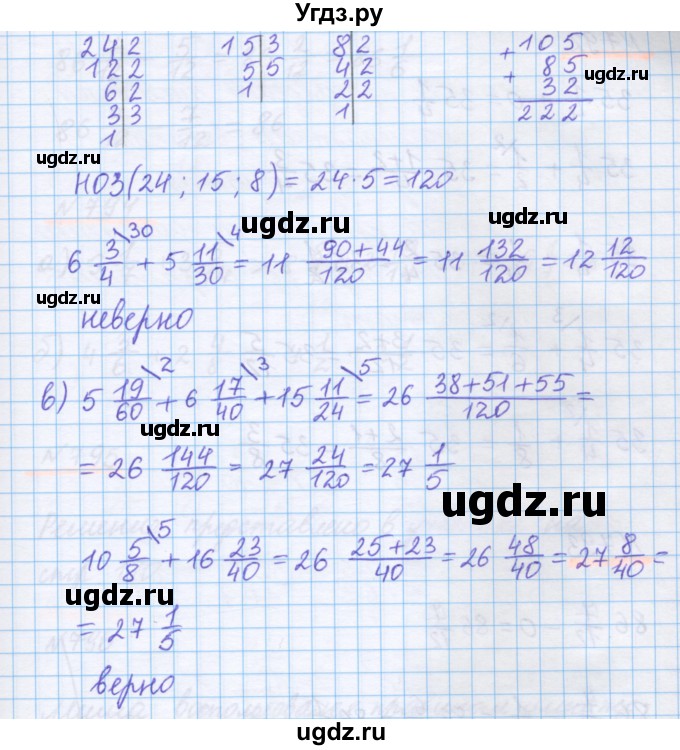 Угдз.ру
24|2 15|3 8|2 +105
12|2 5|5 4|2 + 85
6|2 1 2|2 32
3|3 1 222
1
ugdz.ru
ugdz.ru
НОЗ(24; 15; 8) = 24·5 = 120
ugdz.ru
ugdz.ru
6 3/4 \30 + 5 11/30 \4 = 11 (90+44)/120 = 11 132/120 = 12 12/120
неверно
ugdz.ru
в) 5 19/60 \2 + 6 17/40 \3 + 15 11/24 \5 = 26 (38+51+55)/120 =
ugdz.ru
= 26 144/120 = 27 24/120 = 27 1/5
ugdz.ru
10 5/8 \5 + 16 23/40 = 26 (25+23)/40 = 26 48/40 = 27 8/40 =
ugdz.ru
= 27 1/5
ugdz.ru
верно
ugdz.ru